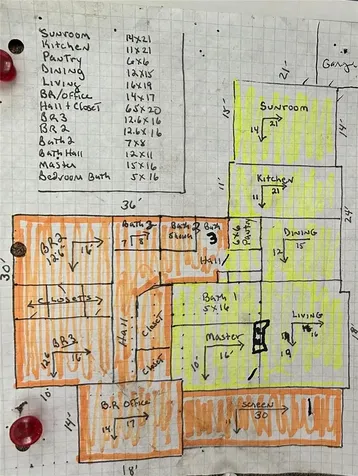 Sunroom 14x21
Kitchen 11x21
Pantry 6x6
Dining 12x15
Living 16x19
BR/Office 14x17
Hall + Closet 6.5x20
BR3 12.6x16
BR2 12.6x16
Bath2 7x8
Bath Hall 12x11
Master 15x16
Bedroom Bath 5x16
21'
Garage
15'
Sunroom
14 21
14'
11'
Kitchen
11 21
24'
36'
Bath 2
7 8
Bath 2
Shower
Bath
3
6x6
Pantry
DINING
12 15
Hall
30'
BR2
12.6 16
CLOSETS
Hall
Closet
Closet
BR3
12.6 16
Bath 1
5x16
Master
10' 16
LIVING
16
19
18'
10'
14'
B.R Office
14 17
18'
SCREEN
30